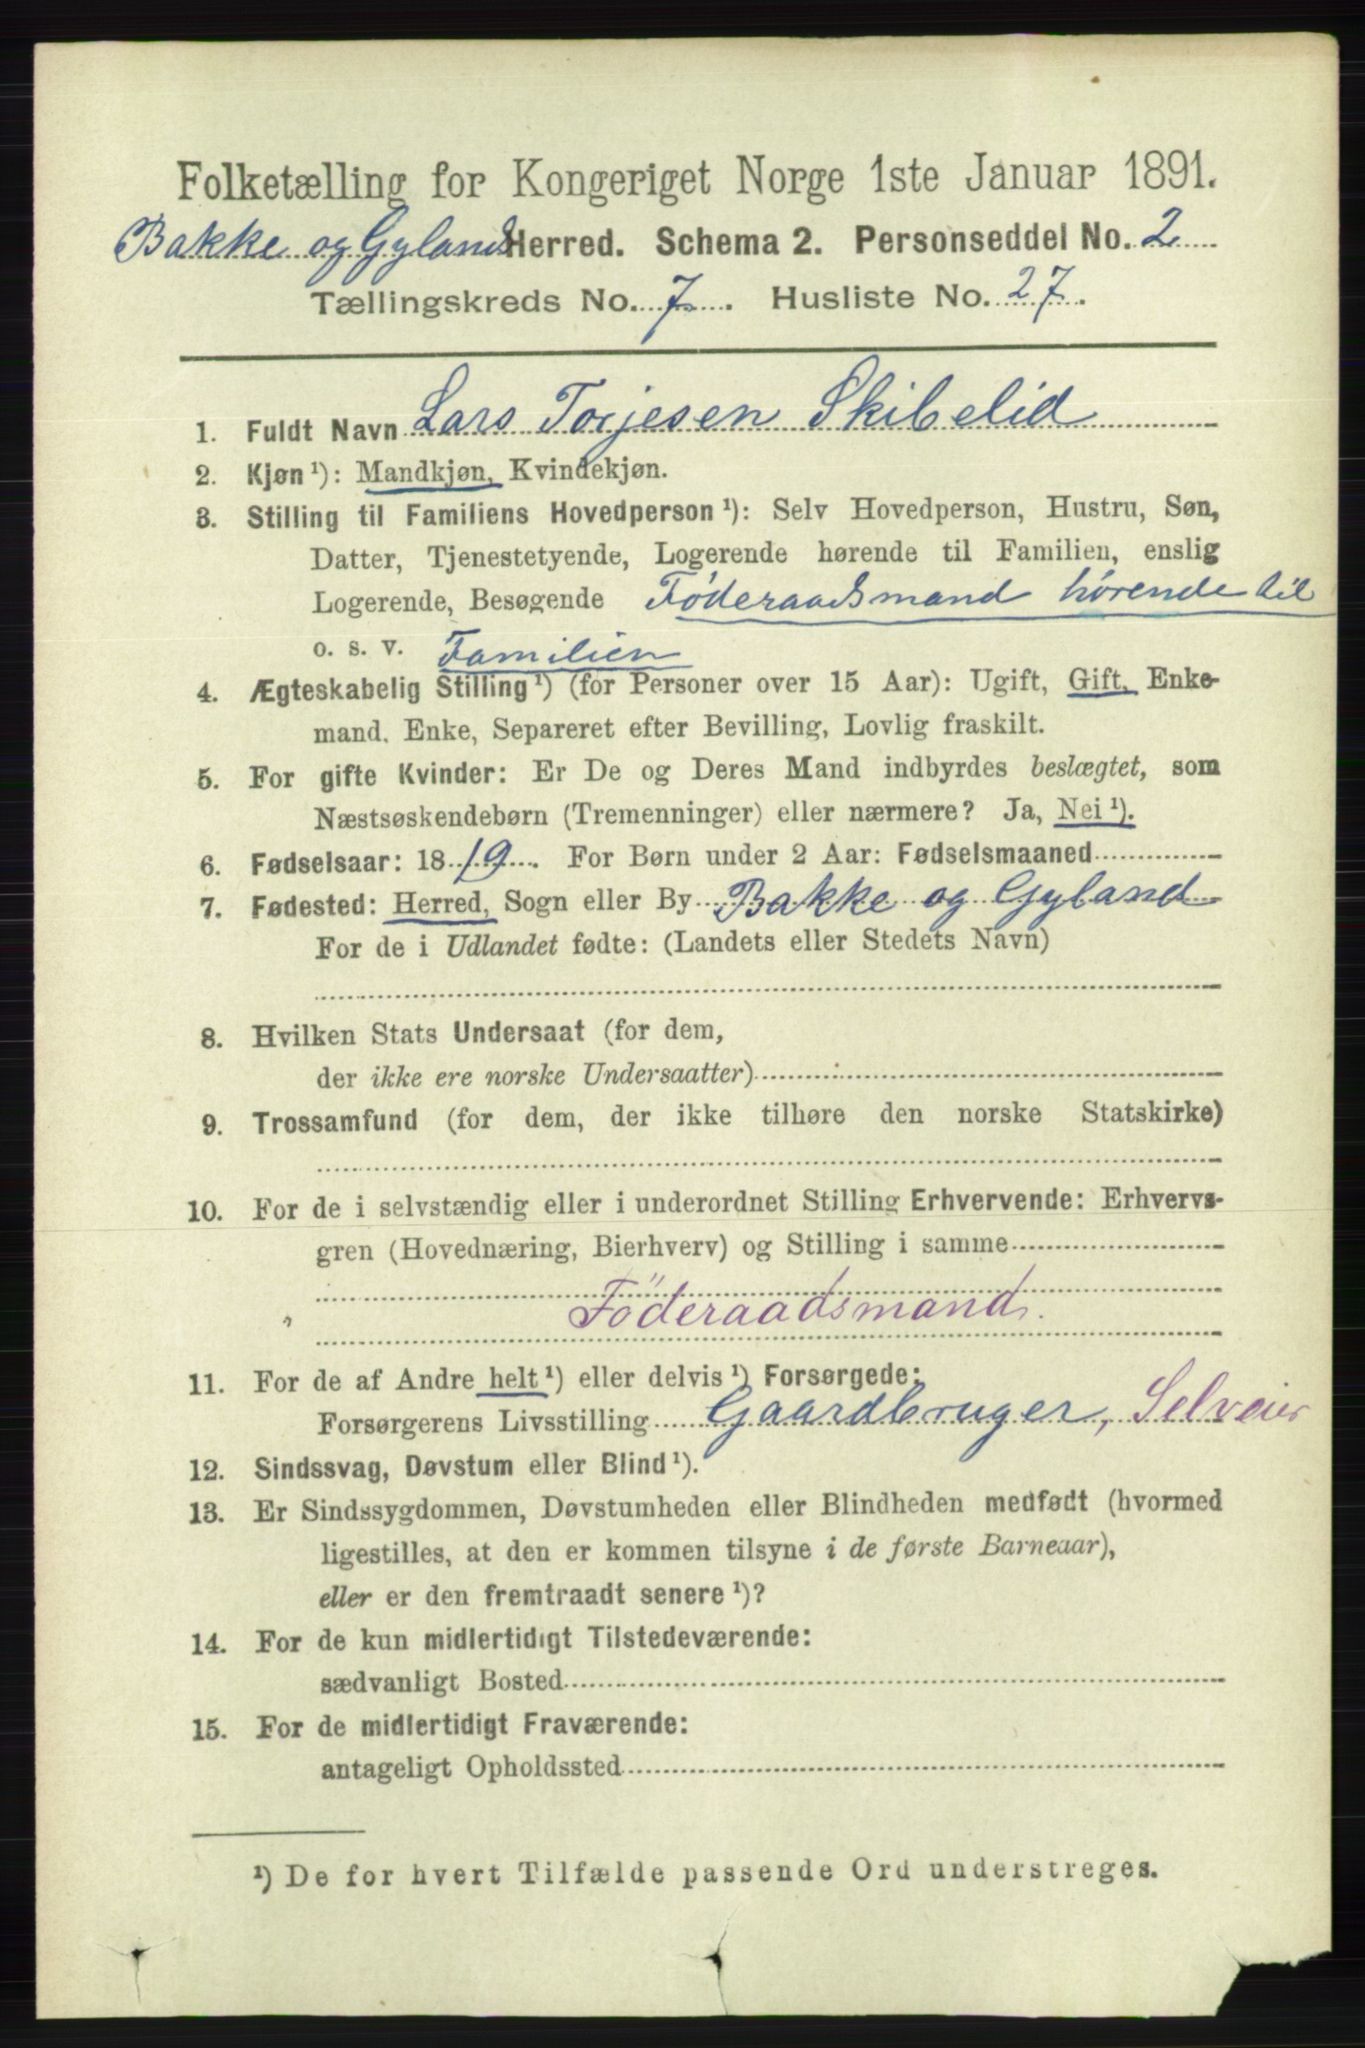 Folketælling for Kongeriget Norge 1ste Januar 1891.
Bakke og Gylands Herred. Schema 2. Personseddel No. 2
Tællingskreds No. 7. Husliste No. 27.
1. Fuldt Navn Lars Torjesen Skibelid
2. Kjøn ¹): Mandkjøn, Kvindekjøn.
3. Stilling til Familiens Hovedperson ¹): Selv Hovedperson, Hustru, Søn,
Datter, Tjenestetyende, Logerende hørende til Familien, enslig
Logerende, Besøgende Føderaadsmand hørende til
o. s. v. Familien
4. Ægteskabelig Stilling ¹) (for Personer over 15 Aar): Ugift, Gift, Enke-
mand. Enke, Separeret efter Bevilling, Lovlig fraskilt.
5. For gifte Kvinder: Er De og Deres Mand indbyrdes beslægtet, som
Næstsøskendebørn (Tremenninger) eller nærmere? Ja, Nei ¹).
6. Fødselsaar: 1819. For Børn under 2 Aar: Fødselsmaaned
7. Fødested: Herred, Sogn eller By Bakke og Gyland
For de i Udlandet fødte: (Landets eller Stedets Navn)
8. Hvilken Stats Undersaat (for dem,
der ikke ere norske Undersaatter)
9. Trossamfund (for dem, der ikke tilhøre den norske Statskirke)
10. For de i selvstændig eller i underordnet Stilling Erhvervende: Erhvervs-
gren (Hovednæring, Bierhverv) og Stilling i samme
Föderaadsmand.
11. For de af Andre helt ¹) eller delvis ¹) Forsørgede:
Forsørgerens Livsstilling Gaardbruger, Selveier
12. Sindssvag, Døvstum eller Blind ¹).
13. Er Sindssygdommen, Døvstumheden eller Blindheden medfødt (hvormed
ligestilles, at den er kommen tilsyne i de første Barneaar),
eller er den fremtraadt senere ¹)?
14. For de kun midlertidigt Tilstedeværende:
sædvanligt Bosted
15. For de midlertidigt Fraværende:
antageligt Opholdssted
¹) De for hvert Tilfælde passende Ord understreges.